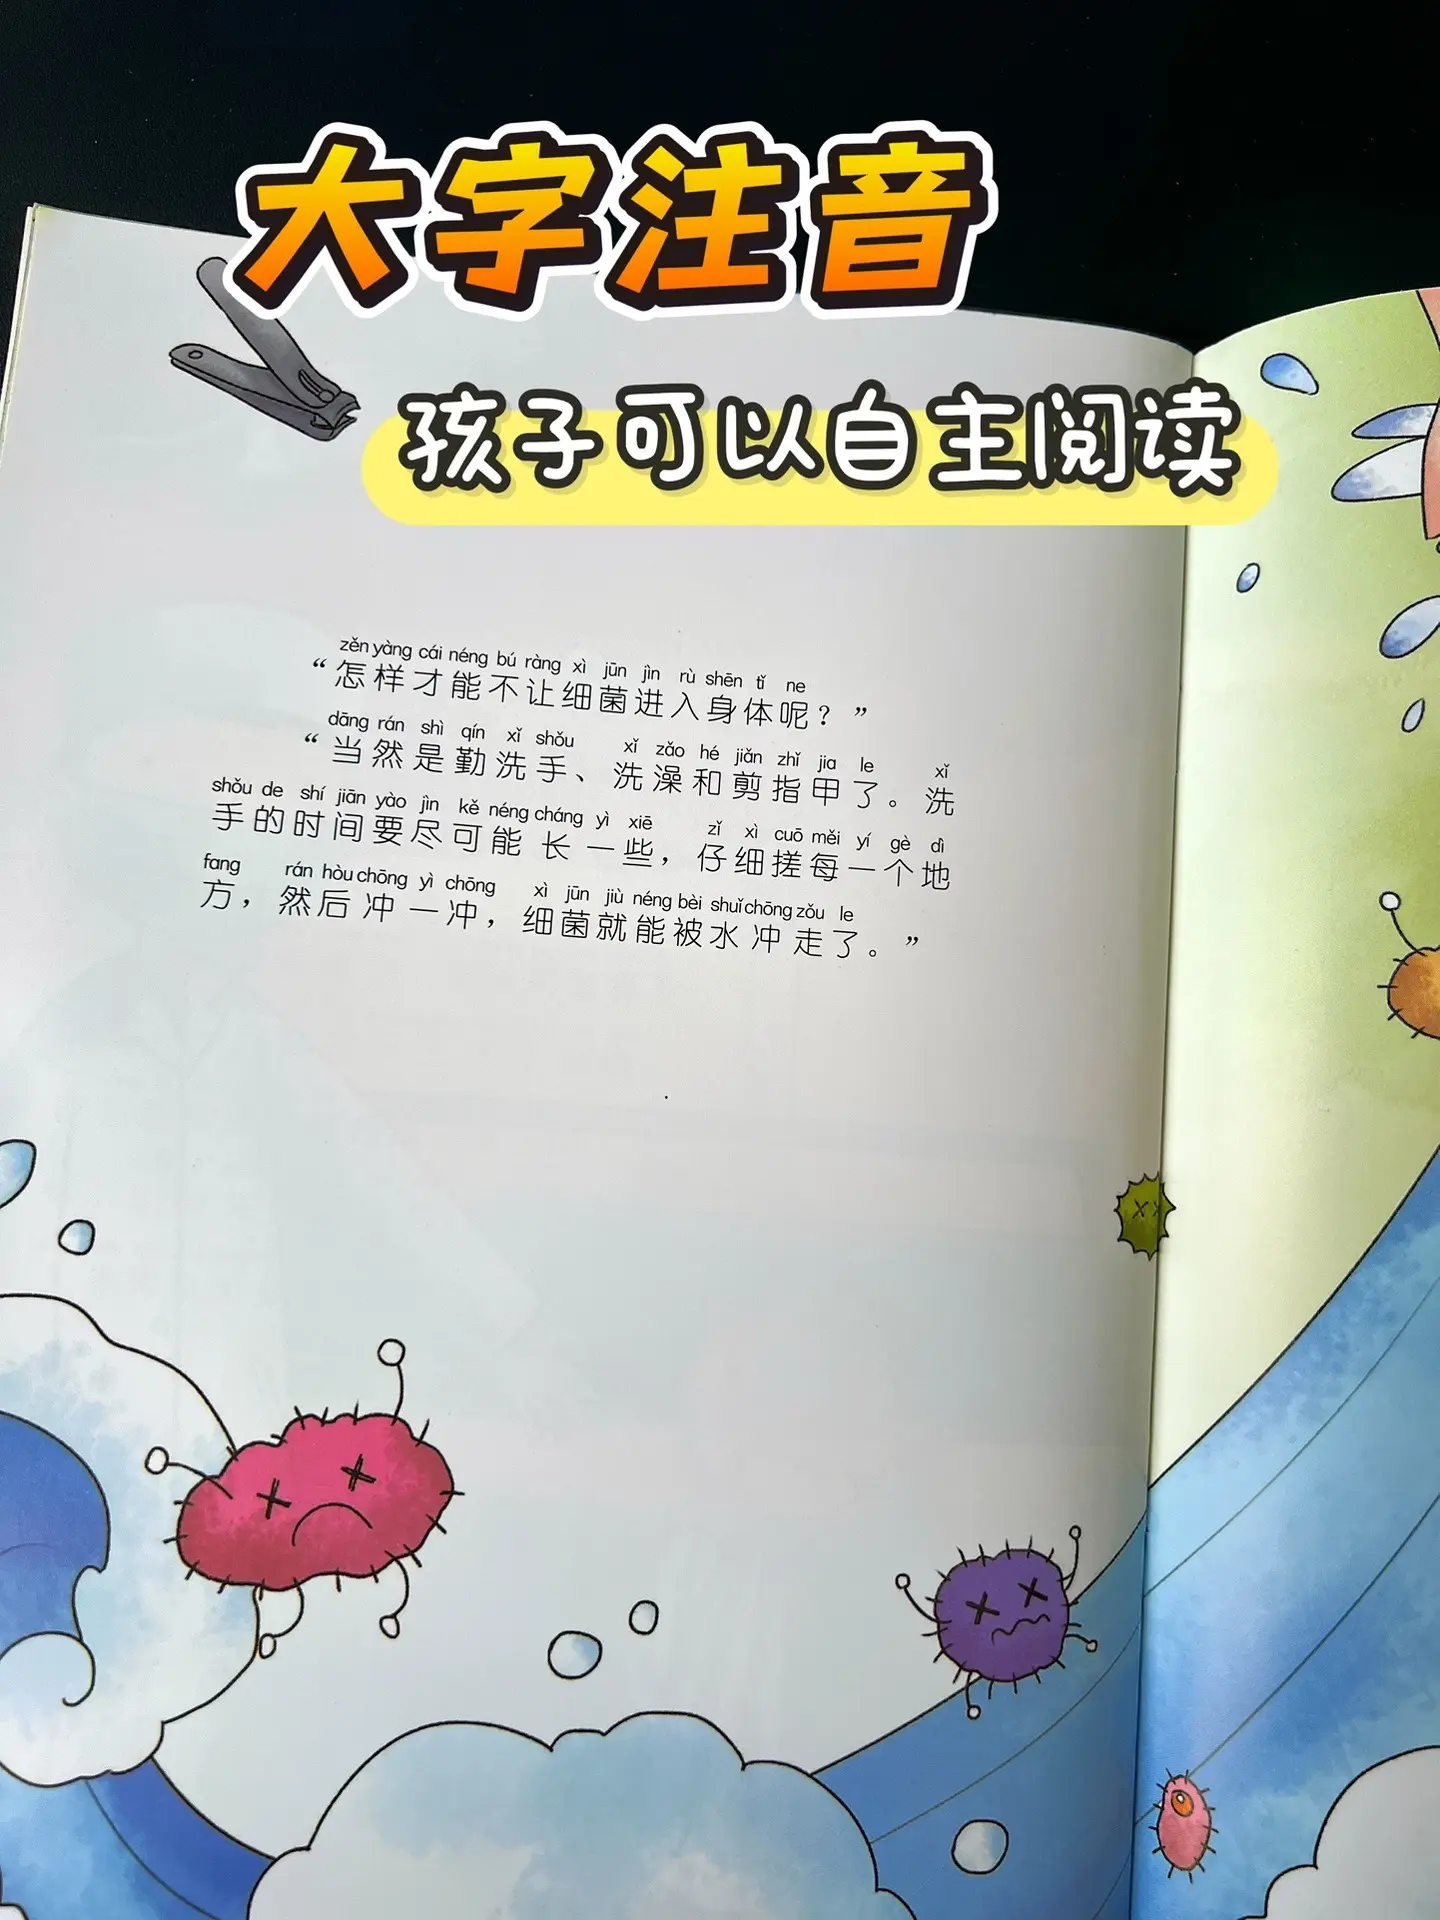 大字注音
孩子可以自主阅读
zěn yàng cái néng bú ràng xì jūn jìn rù shēn tǐ ne
“怎样才能不让细菌进入身体呢？”
dāng rán shì qín xǐ shǒu xǐ zǎo hé jiǎn zhǐ jia le xǐ
“当然是勤洗手、洗澡和剪指甲了。洗
shǒu de shí jiān yào jìn kě néng cháng yì xiē zǐ xì cuō měi yí gè dì
手的时间要尽可能长一些，仔细搓每一个地
fang rán hòu chōng yì chōng xì jūn jiù néng bèi shuǐ chōng zǒu le
方，然后冲一冲，细菌就能被水冲走了。”